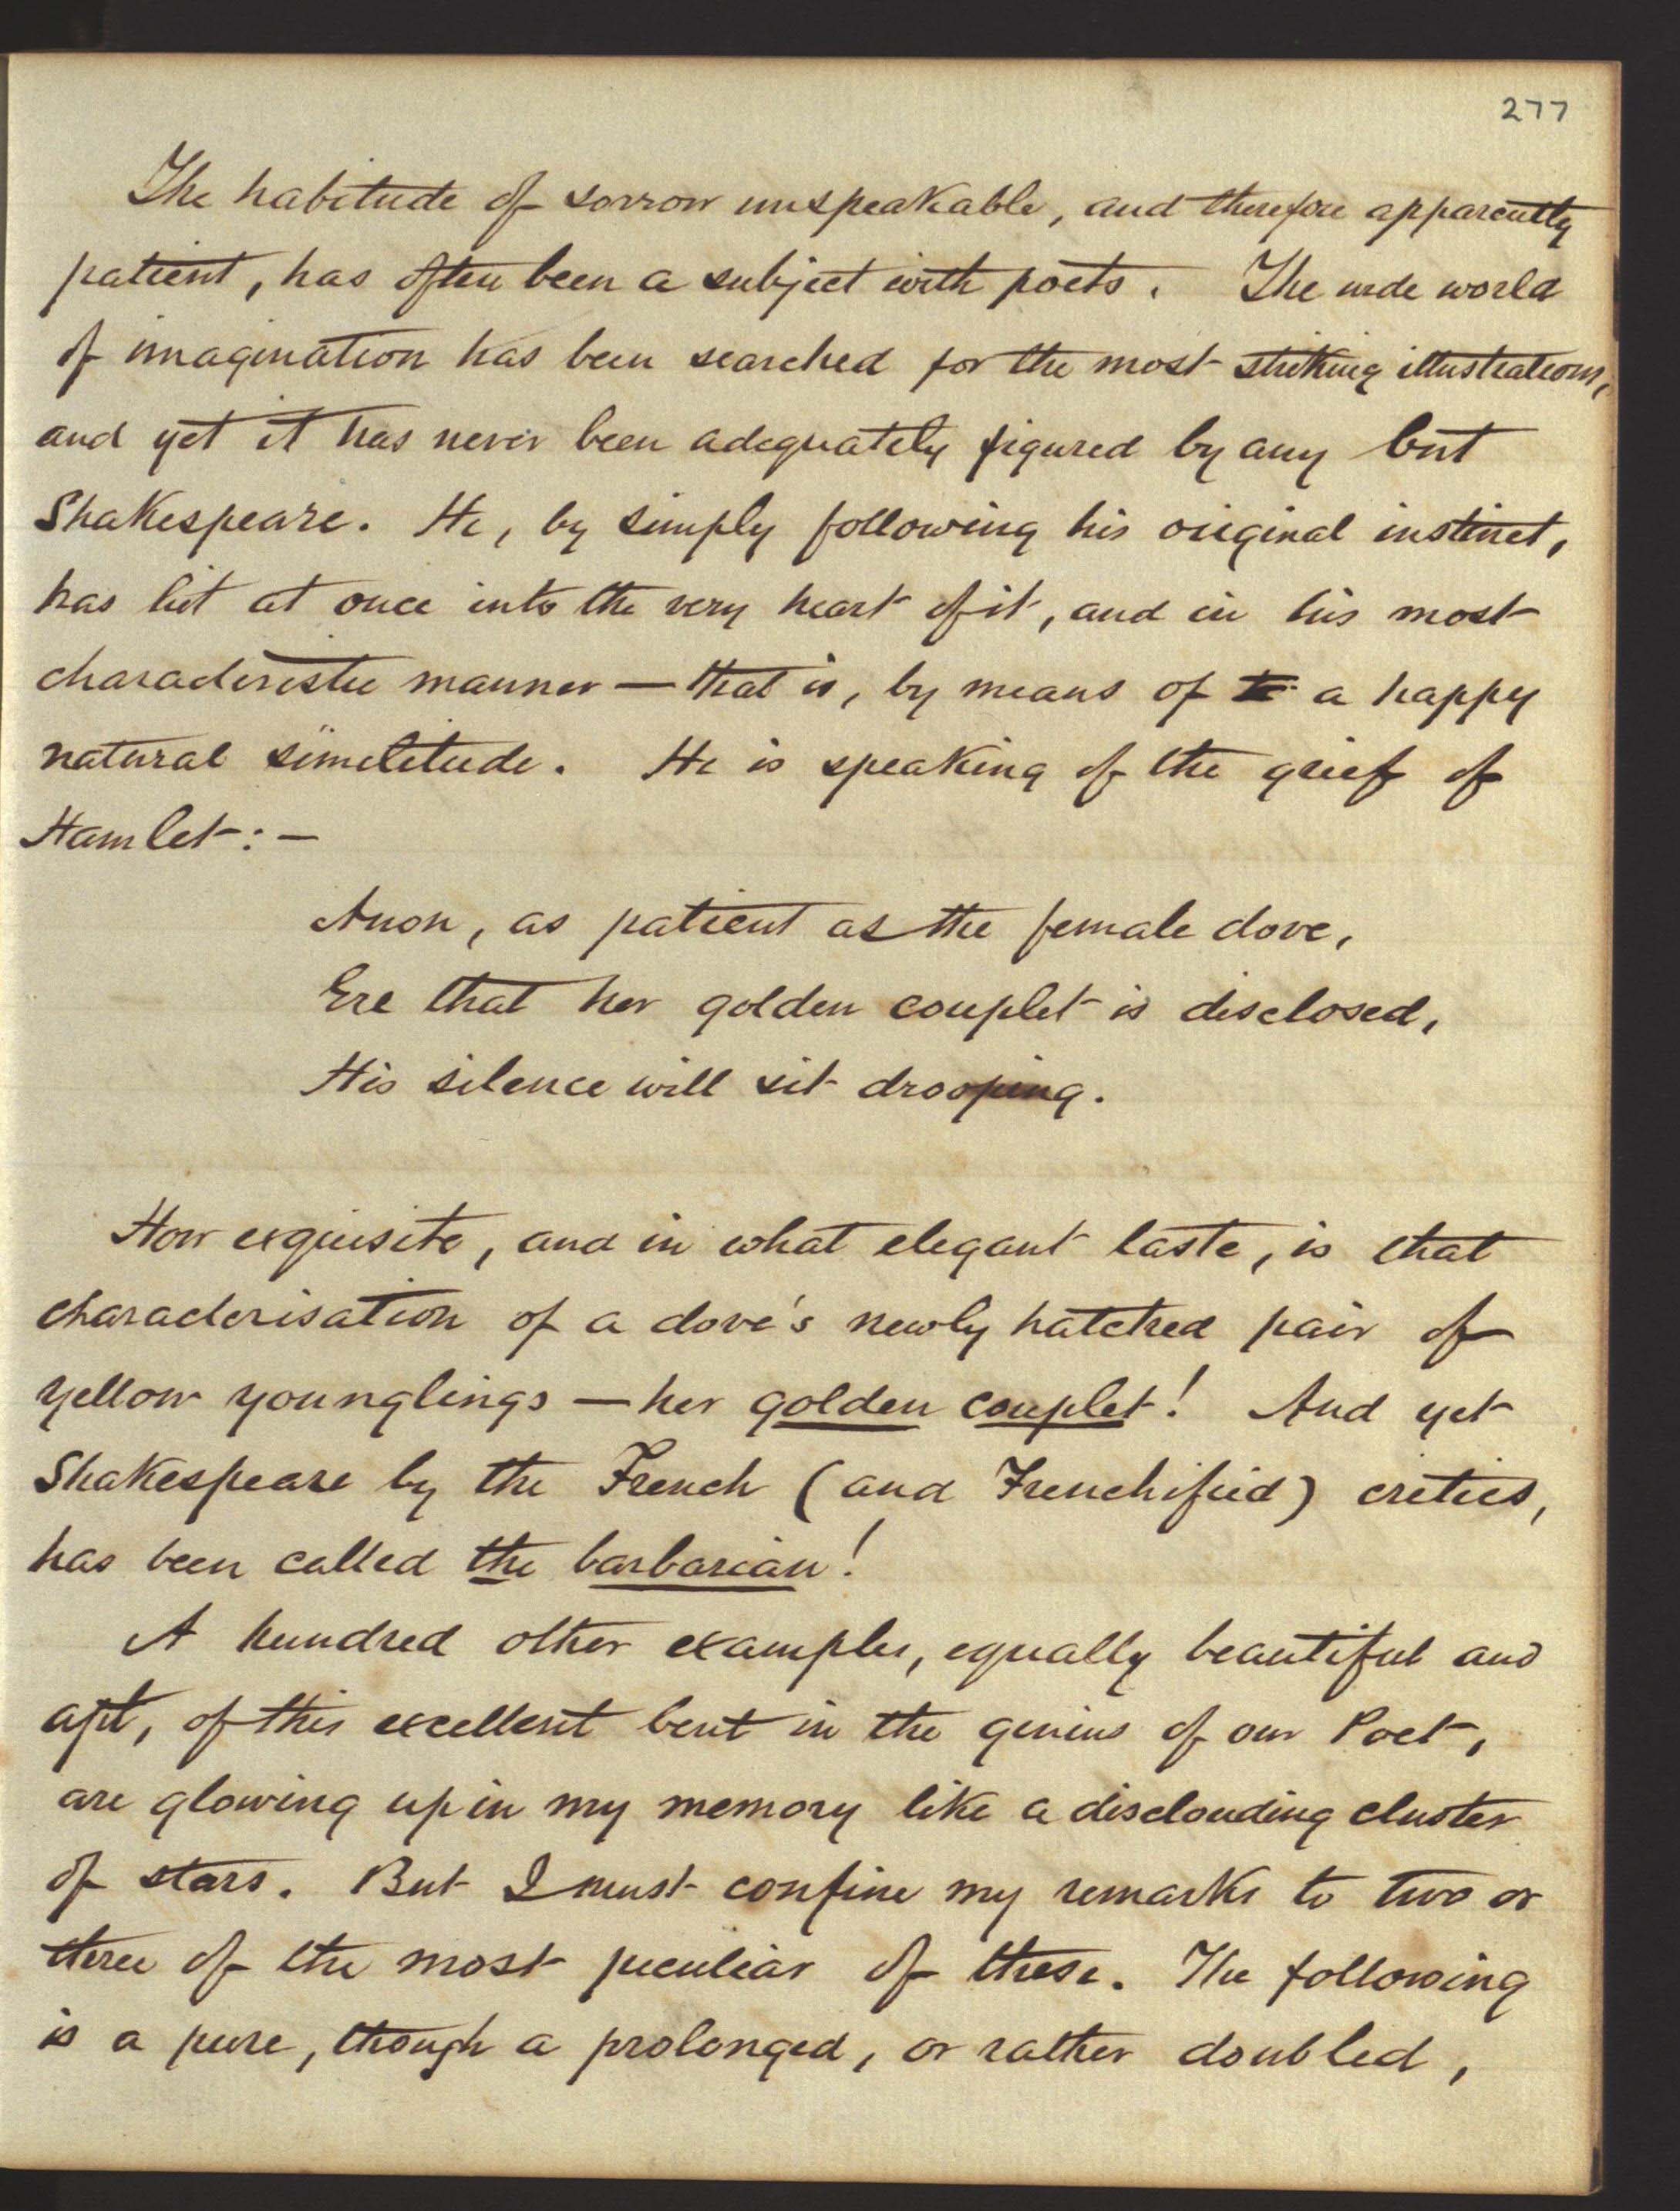 277
The habitude of sorrow unspeakable, and therefore apparently
patient, has often been a subject with poets. The wide world
of imagination has been searched for the most striking illustrations,
and yet it has never been adequately figured by any but
Shakespeare. He, by simply following his original instinct,
has hit at once into the very heart of it, and in his most
characteristic manner — that is, by means of a happy
natural similitude. He is speaking of the grief of
Hamlet: —
Anon, as patient as the female dove,
Ere that her golden couplet is disclosed,
His silence will sit drooping.
How exquisite, and in what elegant taste, is that
characterisation of a dove's newly hatched pair of
yellow younglings — her golden couplet! And yet
Shakespeare by the French (and Frenchified) critics,
has been called the barbarian!
A hundred other examples, equally beautiful and
apt, of this excellent bent in the genius of our Poet,
are glowing up in my memory like a disclouding cluster
of stars. But I must confine my remarks to two or
three of the most peculiar of these. The following
is a pure, though a prolonged, or rather doubled,